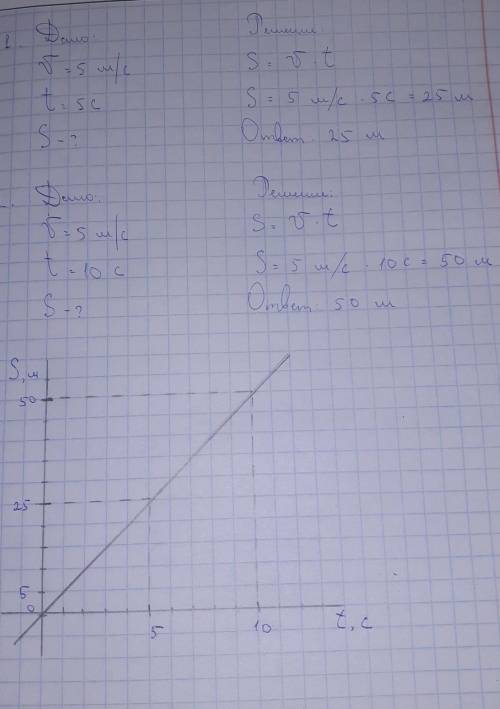 1. Дано: Решение:
V = 5 м/с S = V · t
t = 5 с S = 5 м/с · 5 с = 25 м
S - ? Ответ: 25 м
Дано: Решение:
V = 5 м/с S = V · t
t = 10 с S = 5 м/с · 10 с = 50 м
S - ? Ответ: 50 м
S, м
50
25
5
0
5 10 t, с